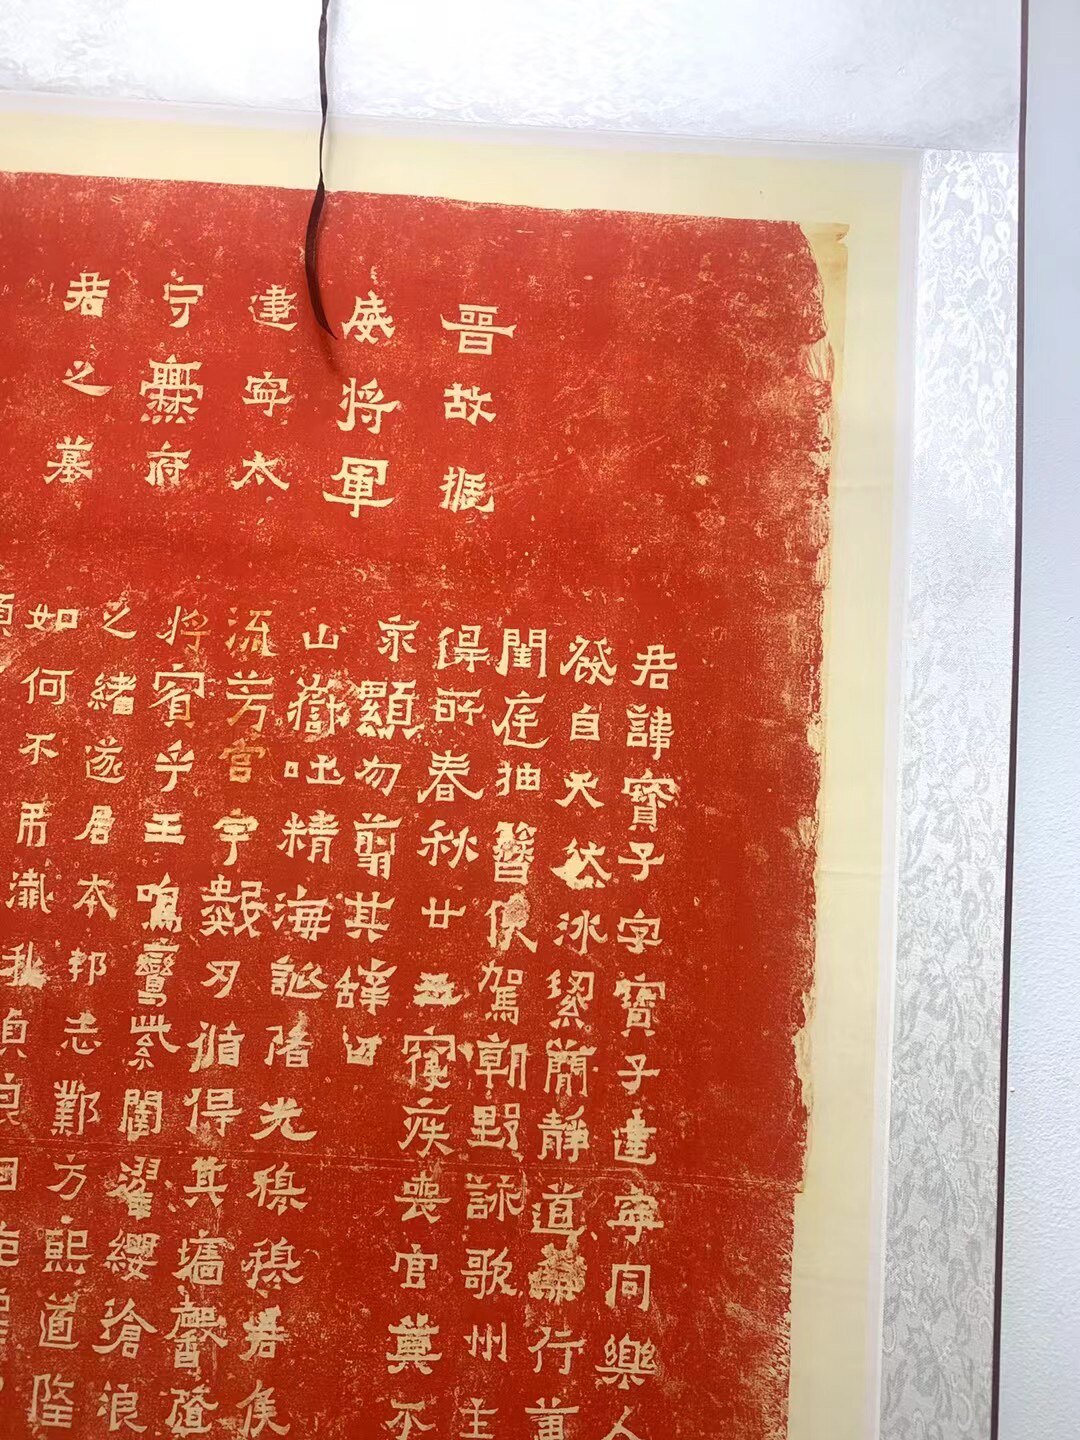 晉故振
威将軍
建寧太
守爨府
君之墓
君諱寳子字寳子建寧同樂人
發自天然冰絜簡靜道兼行葦
閨庭抽簪俟駕朝野詠歌州主
得所春秋廿五寑疾喪官莫不
永顯勿翦其辭曰
山嶽吐精海誕陼光穆穆君侯
流芳宫宇數刃循得其墻馨隨
将賓乎王鳴鸞紫闥濯纓滄浪
之緒遂居本邦志鄴方熙道隆
如何不弔殲我貞良回抱